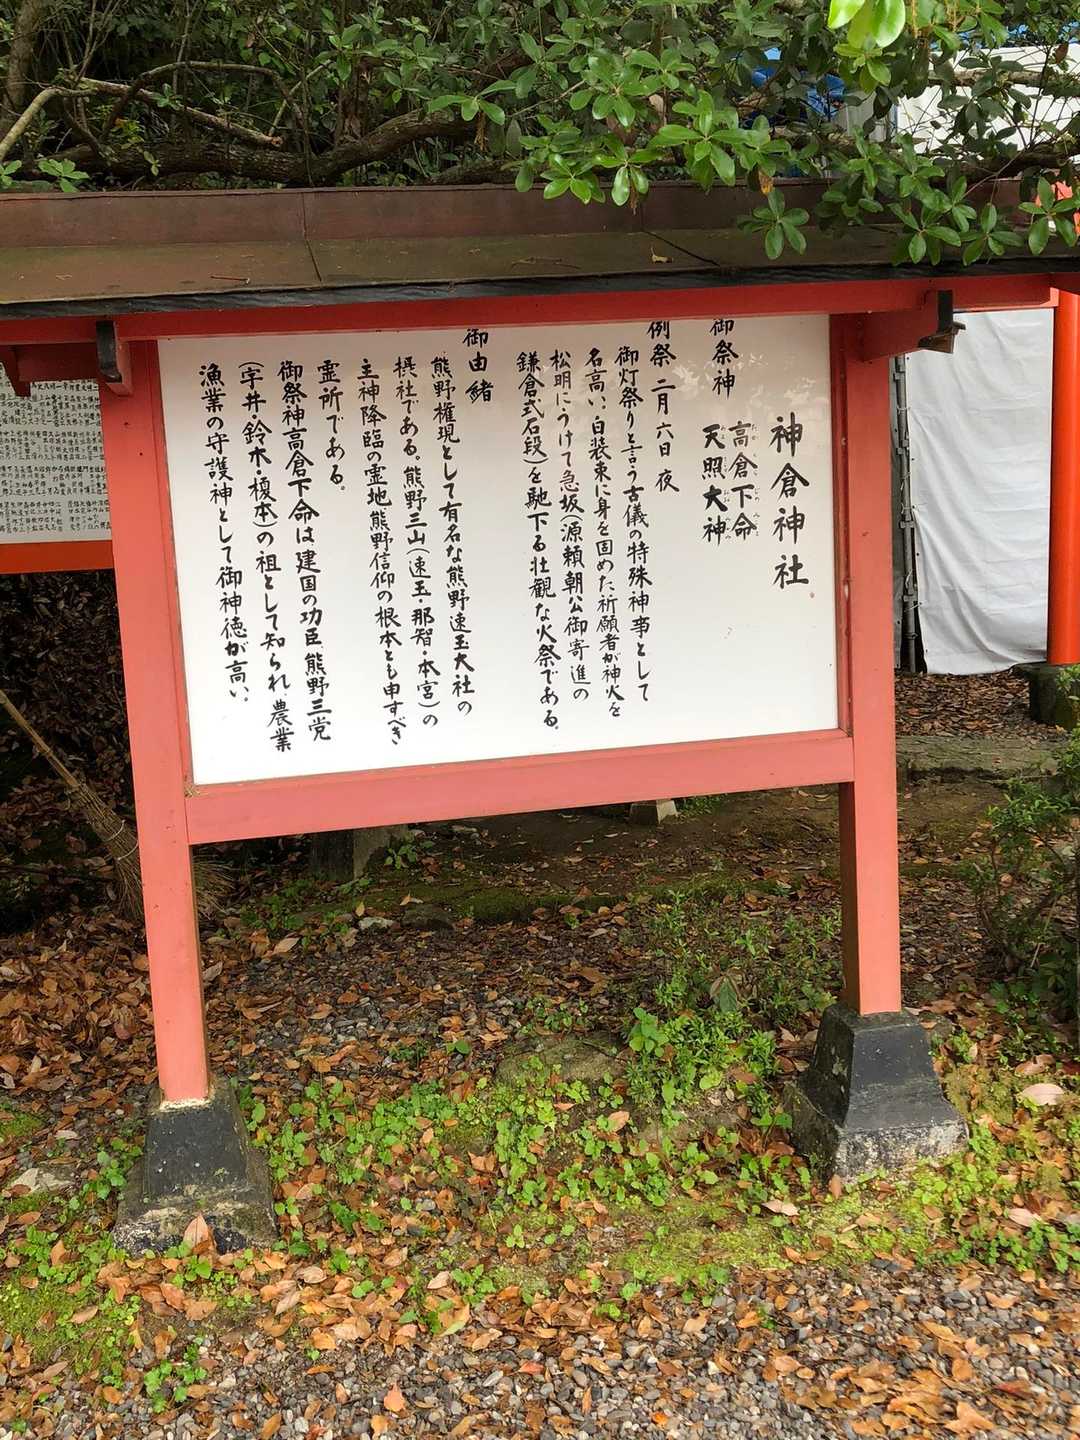 神倉神社
御祭神
高倉下命
たかくらじのみこと
天照大神
例祭 二月六日 夜
御灯祭りと言う古儀の特殊神事として
名高い、白装束に身を固めた祈願者が神火を
松明にうけて急坂(源頼朝公御寄進の
鎌倉式石段)を馳下る壮観な火祭である。
御由緒
熊野権現として有名な熊野速玉大社の
摂社である。熊野三山(速玉・那智・本宮)の
主神降臨の霊地熊野信仰の根本とも申すべき
霊所である。
御祭神高倉下命は建国の功臣、熊野三党
(宇井・鈴木・榎本)の祖として知られ、農業
漁業の守護神として御神徳が高い。